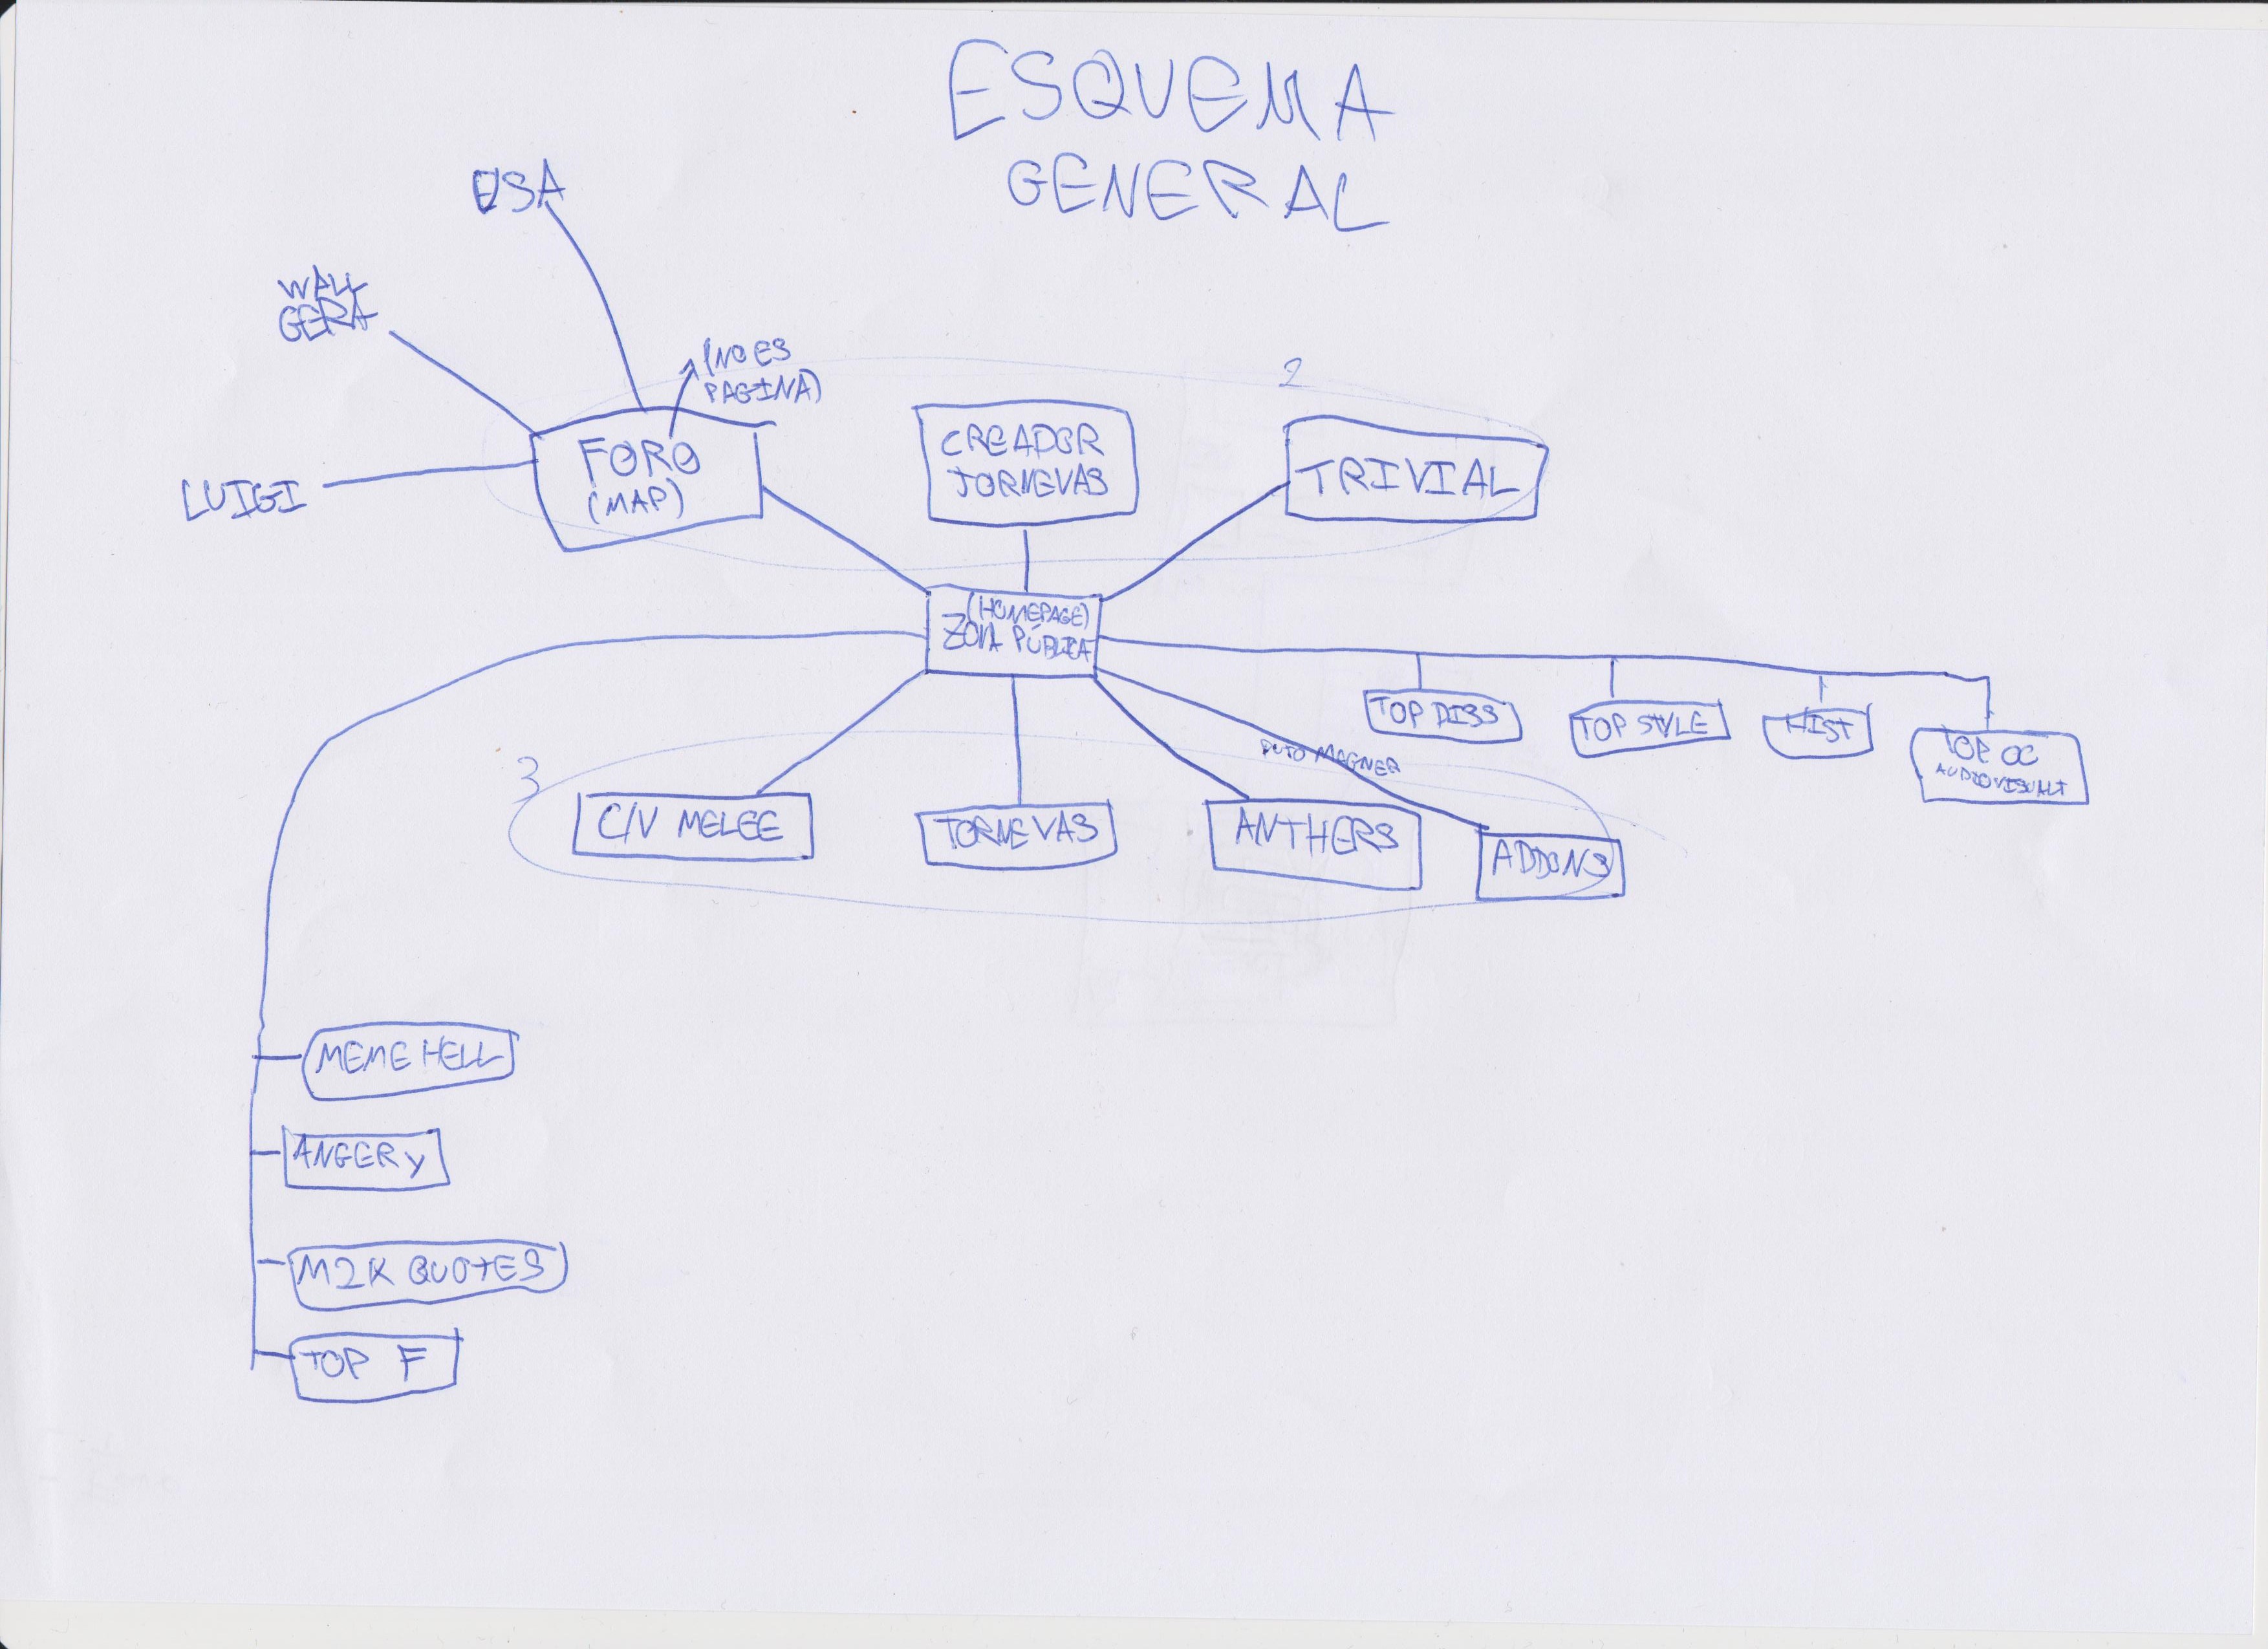 ESQUEMA
GENERAL
USA
WALL
GERA
(NO ES
PAGINA)
2
LUIGI
FORO
(MAP)
CREADOR
TORNEVAS
TRIVIAL
(HOMEPAGE)
ZONA PÚBLICA
TOP DISS
TOP STYLE
HIST
TOP OC
3
PUTO MAGNER
C/V MELEE
TORNEVAS
ANTHERS
ADDONS
MEME HELL
ANGERY
M2K QUOTES
TOP F